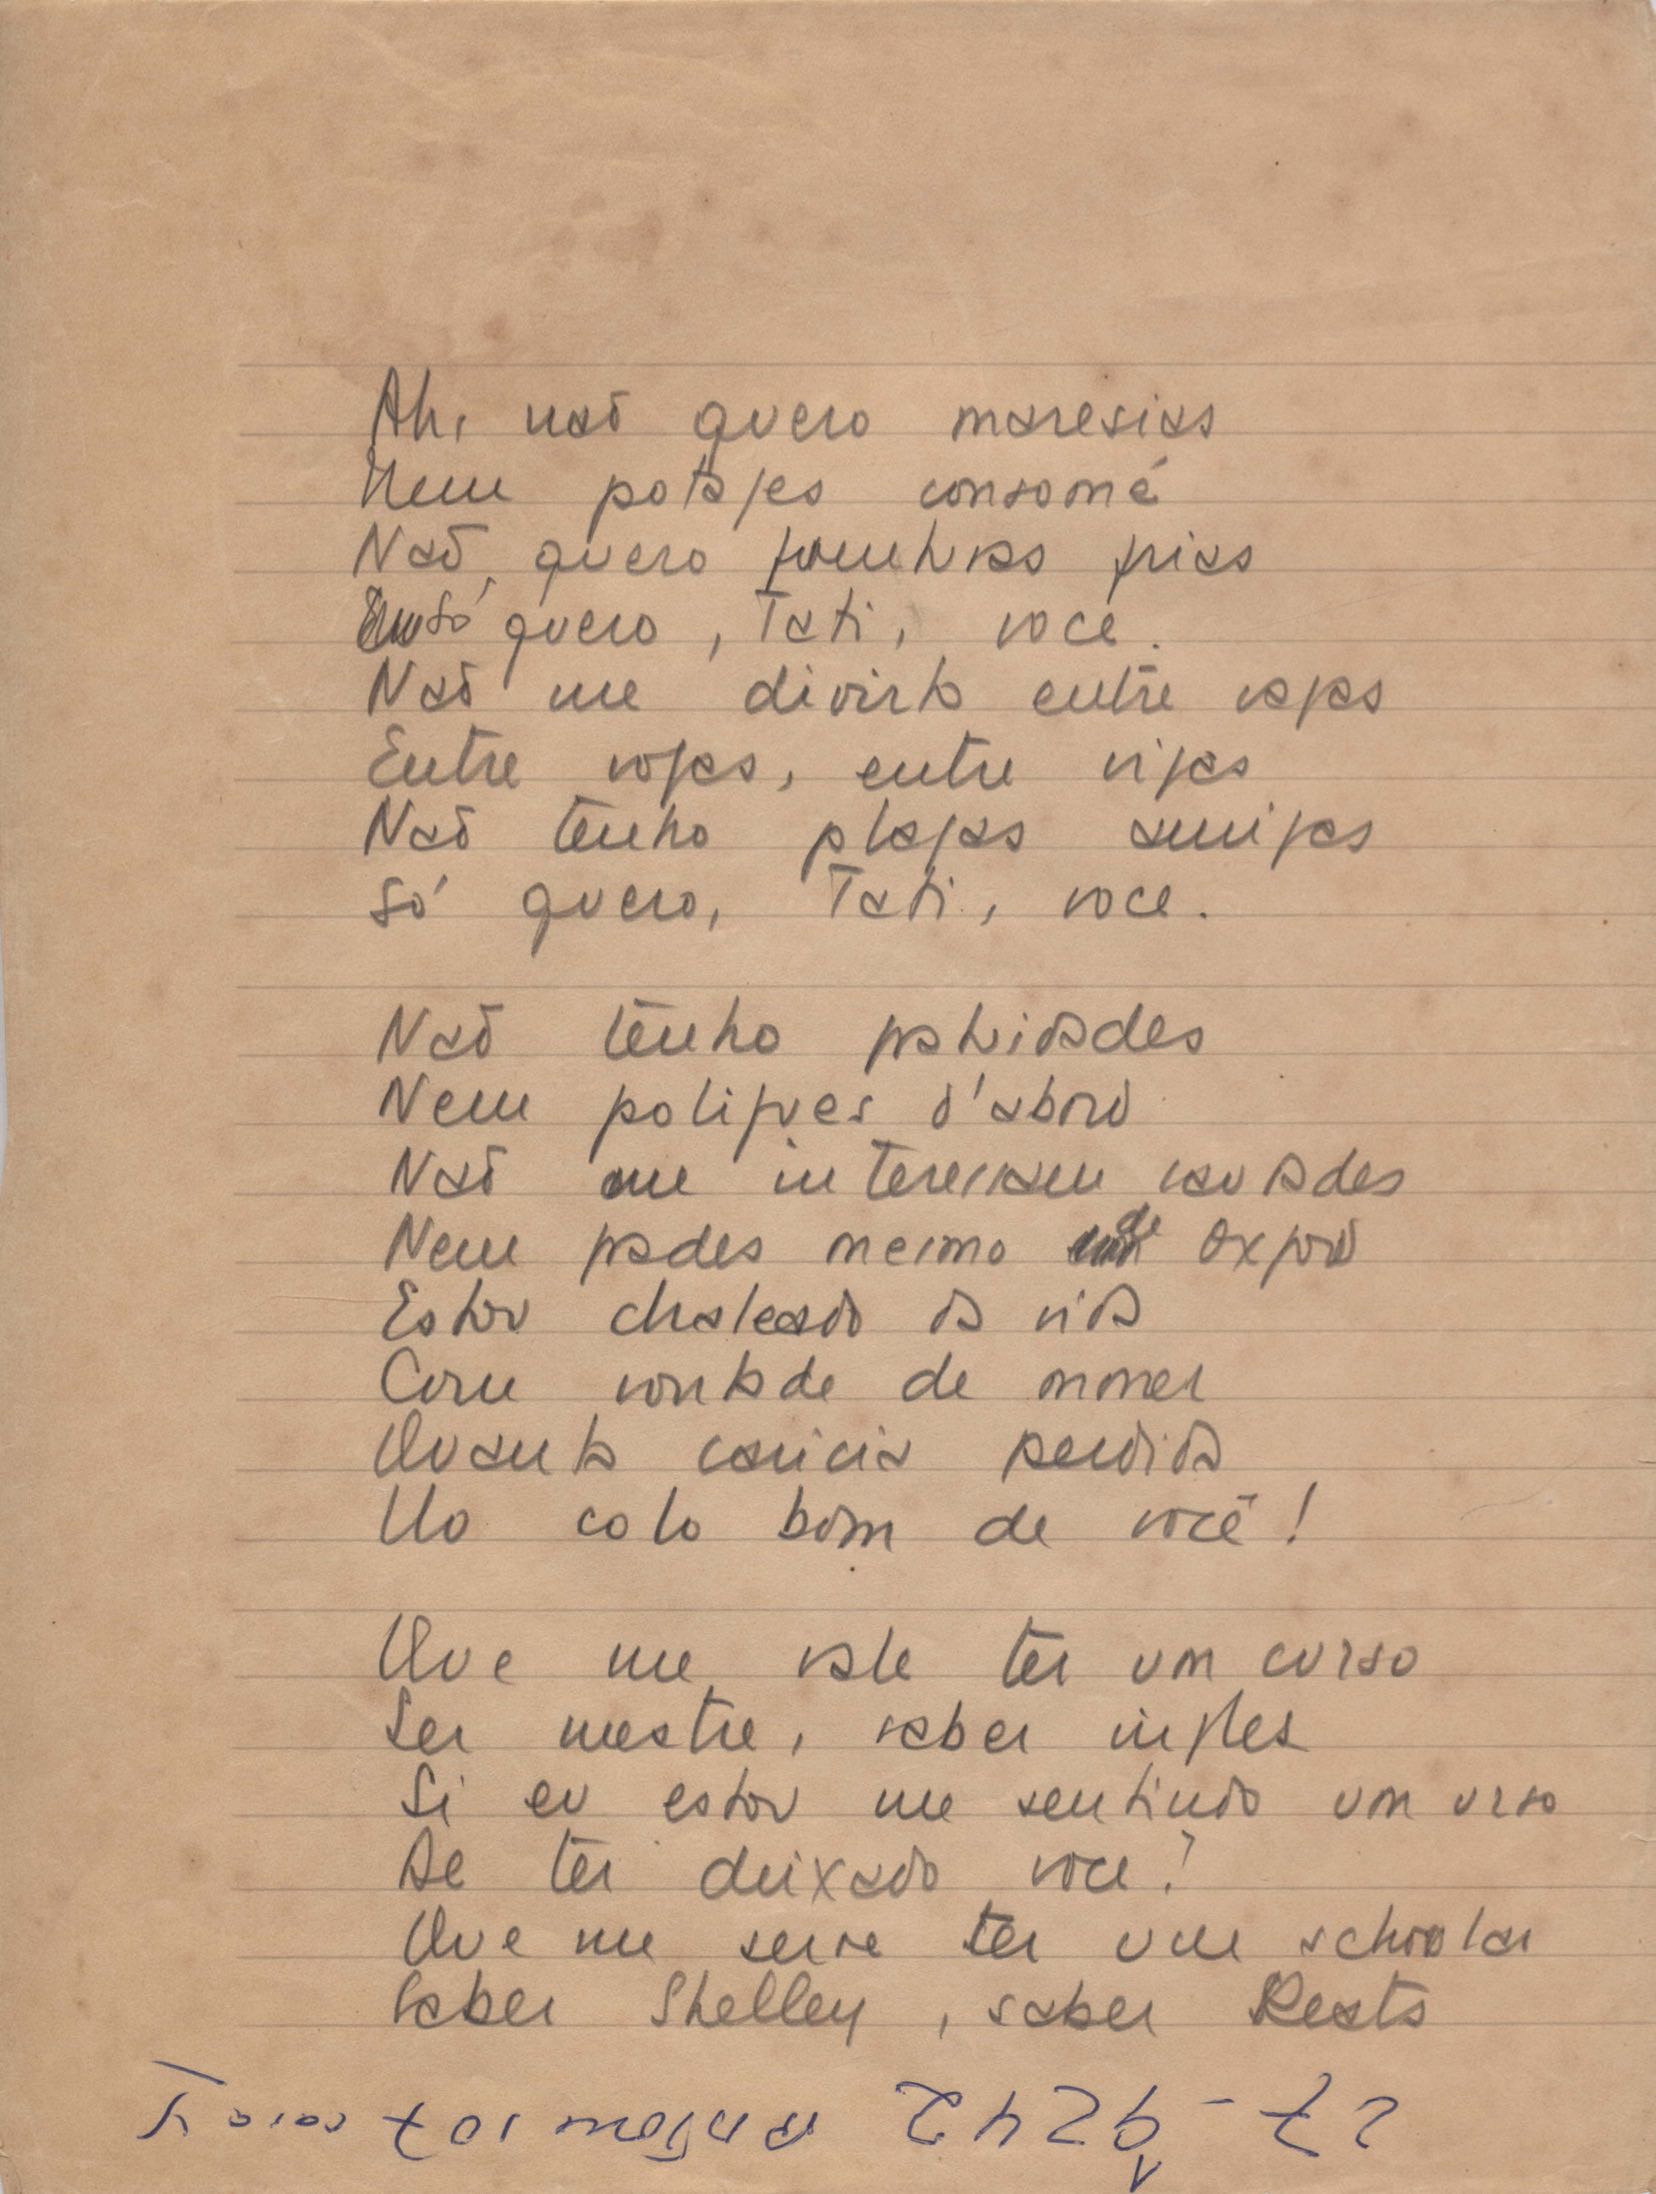 Ah, não quero maresias
Nem potages consomé
Não quero frias
Eu só quero, Tati, você.
Não me divirto entre vagas
Entre vogas, entre vigas
Não tenho plagas amigas
Só quero, Tati, voce.
Não tenho fatuidades
Nem d'abord
Não me interessam saudades
Nem mesmo de Oxford
Estou chateado da vida
Com vontade de morrer
Quanta caricia perdida
No colo bom de você!
Que me vale ter um curso
Ser mestre, saber ingles
Si eu estou me sentindo um urso
De ter deixado voce?
Que me serve ter um schoolar
Saber Shelley, saber Keats